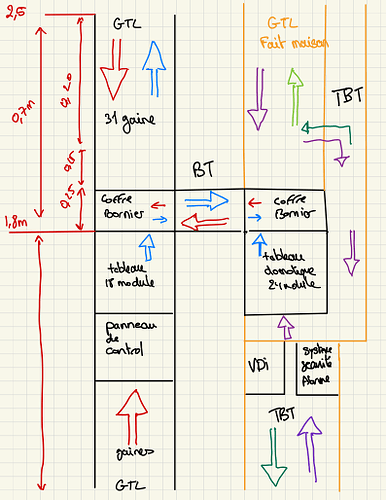 2,5
GTL
GTL
Fait maison
0,7m
TBT
31 gaine
BT
0,25
coffre
Bornier
coffre
Bornier
1,8m
tableau
18 module
tableau
domotique
24 module
panneau
de
control
VDi
système
sécurité
Alarme
TBT
gaines
GTL